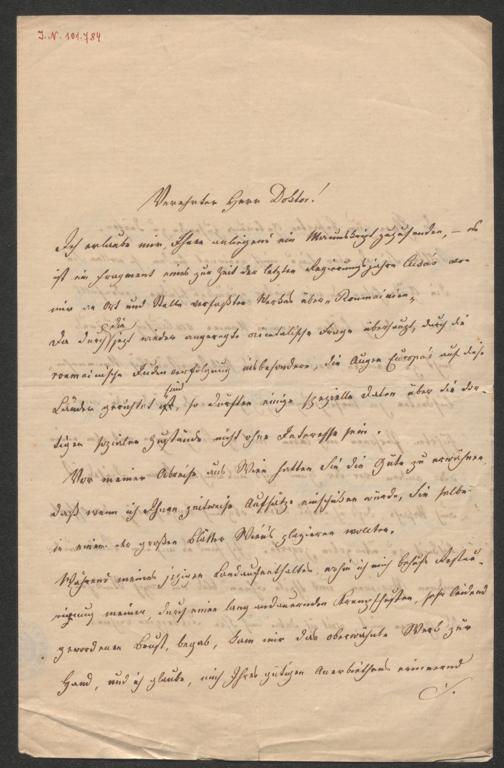 J. N. 191.784
Verehrter Herr Doktor!
Ich erlaube mir, Ihnen anliegend ein Manuskript zuzusenden, — es
ist ein Fragment eines zur Zeit der letzten Regierungsjahre Cusas von
mir an Ort und Stelle verfaßten Werkes über „Roumainien„
Da durch die jezt wieder angeregte orientalische Frage überhaupt, durch die
roumainische Judenverfolgung insbesondere, die Augen Europas auf diese
Länder gerichtet sind, so dürften einige spezielle Daten über die dor-
tigen sozialen Zustände nicht ohne Interesse sein.
Vor meiner Abreise aus Wien hatten Sie die Güte zu erwähnen,
daß wenn ich Ihnen zeitweise Aufsätze einschiken würde, Sie selbe
in einem der großen Blätter Wiens plazieren wollten.
Während meines jezigen Landaufenthaltes, wohin ich mich behufs Restau-
rirung meiner, durch einen lang andauernden, sehr leidend
gewordenen Brust, begab, kam mir das oberwähnte Werk zur
Hand, und ich glaube, mich Ihres gütigen Anerbiethens erinnernd